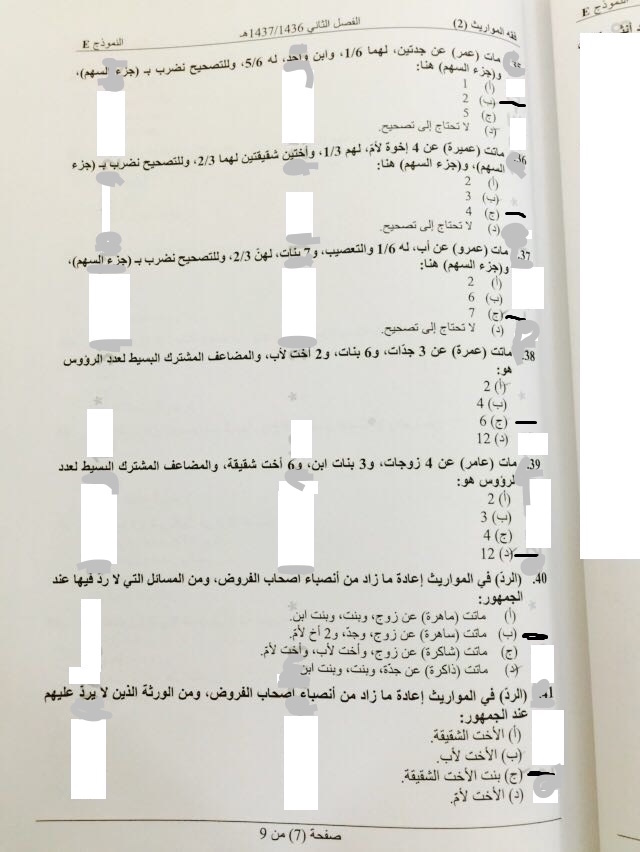 فقه المواريث (2)
الفصل الثاني 1437/1436هـ
النموذج E
النموذج E
مات (عمر) عن جدتين، لهما 1/6، وابن واحد، له 5/6، وللتصحيح نضرب بـ (جزء السهم)،
و(جزء السهم) هنا:
(أ) 1
(ب) 2
(ج) 5
(د) لا تحتاج إلى تصحيح.
36. ماتت (عميرة) عن 4 إخوة لأم، لهم 1/3، وأختين شقيقتين لهما 2/3، وللتصحيح نضرب بـ (جزء
السهم)، و(جزء السهم) هنا:
(أ) 2
(ب) 3
(ج) 4
(د) لا تحتاج إلى تصحيح.
37. مات (عمرو) عن أب، له 1/6 والتعصيب، و7 بنات، لهنّ 2/3، وللتصحيح نضرب بـ (جزء السهم)،
و(جزء السهم) هنا:
(أ) 2
(ب) 6
(ج) 7
(د) لا تحتاج إلى تصحيح.
38. ماتت (عمرة) عن 3 جدّات، و6 بنات، و2 أخت لأب، والمضاعف المشترك البسيط لعدد الرؤوس
هو:
(أ) 2
(ب) 4
(ج) 6
(د) 12
39. مات (عامر) عن 4 زوجات، و3 بنات ابن، و6 أخت شقيقة، والمضاعف المشترك البسيط لعدد
لرؤوس هو:
(أ) 2
(ب) 3
(ج) 4
(د) 12
40. (الردّ) في المواريث إعادة ما زاد من أنصباء اصحاب الفروض، ومن المسائل التي لا ردّ فيها عند
الجمهور:
(أ) ماتت (ماهرة) عن زوج، وبنت، وبنت ابن.
(ب) ماتت (ساهرة) عن زوج، وجدّ، و2 أخ لأمّ.
(ج) ماتت (شاكرة) عن زوج، وأخت لأب، وأخت لأمّ.
(د) ماتت (ذاكرة) عن جدّة، وبنت، وبنت ابن
41. (الردّ) في المواريث إعادة ما زاد من أنصباء اصحاب الفروض، ومن الورثة الذين لا يردّ عليهم
عند الجمهور:
(أ) الأخت الشقيقة.
(ب) الأخت لأب.
(ج) بنت الأخت الشقيقة.
(د) الأخت لأمّ.
صفحة (7) من 9